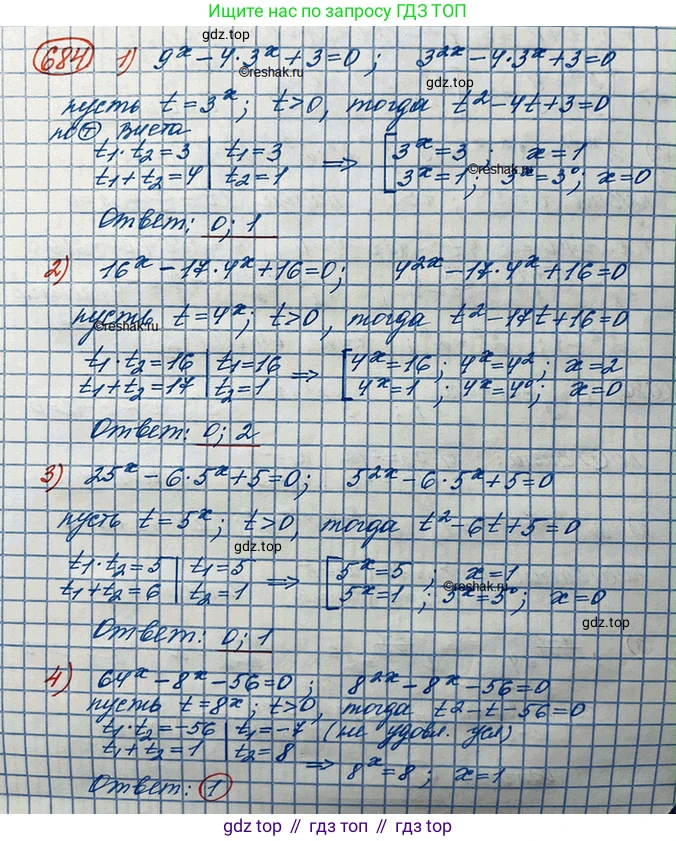 Ищите по запросу ГДЗ ТОП
gdz.top
684 1) 9ˣ – 4·3ˣ + 3 = 0; 3²ˣ – 4·3ˣ + 3 = 0
©reshak.ru
gdz.top
пусть t = 3ˣ; t > 0, тогда t² – 4t + 3 = 0
по Ⓣ Виета
t₁·t₂ = 3 | t₁ = 3 ⇒ [ 3ˣ = 3; x = 1
©reshak.ru
t₁ + t₂ = 4 | t₂ = 1 [ 3ˣ = 1; 3ˣ = 3⁰; x = 0
Ответ: 0; 1
2) 16ˣ – 17·4ˣ + 16 = 0; 4²ˣ – 17·4ˣ + 16 = 0
пусть t = 4ˣ; t > 0, тогда t² – 17t + 16 = 0
©reshak.ru
t₁·t₂ = 16 | t₁ = 16 ⇒ [ 4ˣ = 16; 4ˣ = 4²; x = 2
t₁ + t₂ = 17 | t₂ = 1 [ 4ˣ = 1; 4ˣ = 4⁰; x = 0
Ответ: 0; 2
3) 25ˣ – 6·5ˣ + 5 = 0; 5²ˣ – 6·5ˣ + 5 = 0
пусть t = 5ˣ; t > 0, тогда t² – 6t + 5 = 0
gdz.top
t₁·t₂ = 5 | t₁ = 5 ⇒ [ 5ˣ = 5; x = 1
©reshak.ru
t₁ + t₂ = 6 | t₂ = 1 [ 5ˣ = 1; 5ˣ = 5⁰; x = 0
gdz.top
Ответ: 0; 1
4) 64ˣ – 8ˣ – 56 = 0; 8²ˣ – 8ˣ – 56 = 0
пусть t = 8ˣ; t > 0, тогда t² – t – 56 = 0
t₁·t₂ = –56 | t₁ = –7 (не удовл. усл)
t₁ + t₂ = 1 | t₂ = 8 ⇒ 8ˣ = 8; x = 1
Ответ: 1
gdz.top // гдз топ // гдз.top